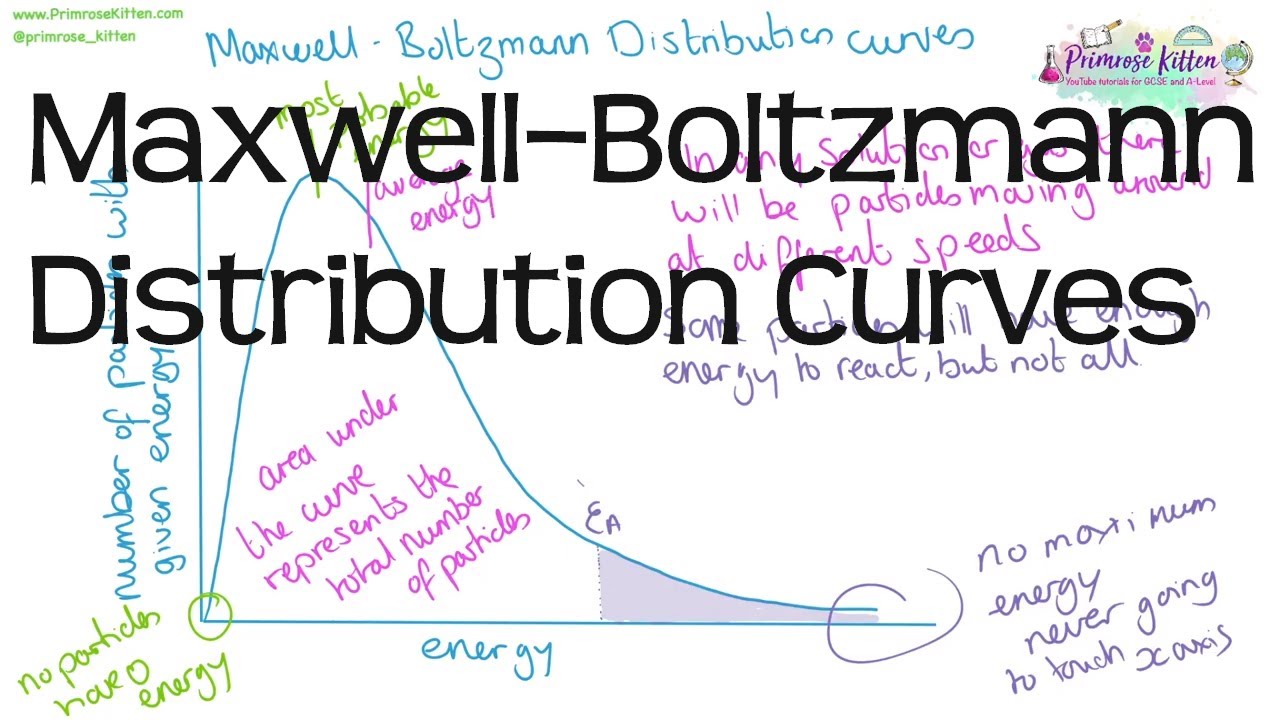 www.PrimroseKitten.com
@primrose_kitten
Maxwell - Boltzmann Distribution curves
Primrose Kitten
YouTube tutorials for GCSE and A-Level
Maxwell-Boltzmann
Distribution Curves
most
probable
energy
average
energy
In any solution or gas there
will be particles moving around
at different speeds
Some particles will have enough
energy to react, but not all
number of particles with
given energy
area under
the curve
represents the
total number
of particles
EA
no maximum
energy
never going
to touch x axis
energy
no particles
have 0
energy